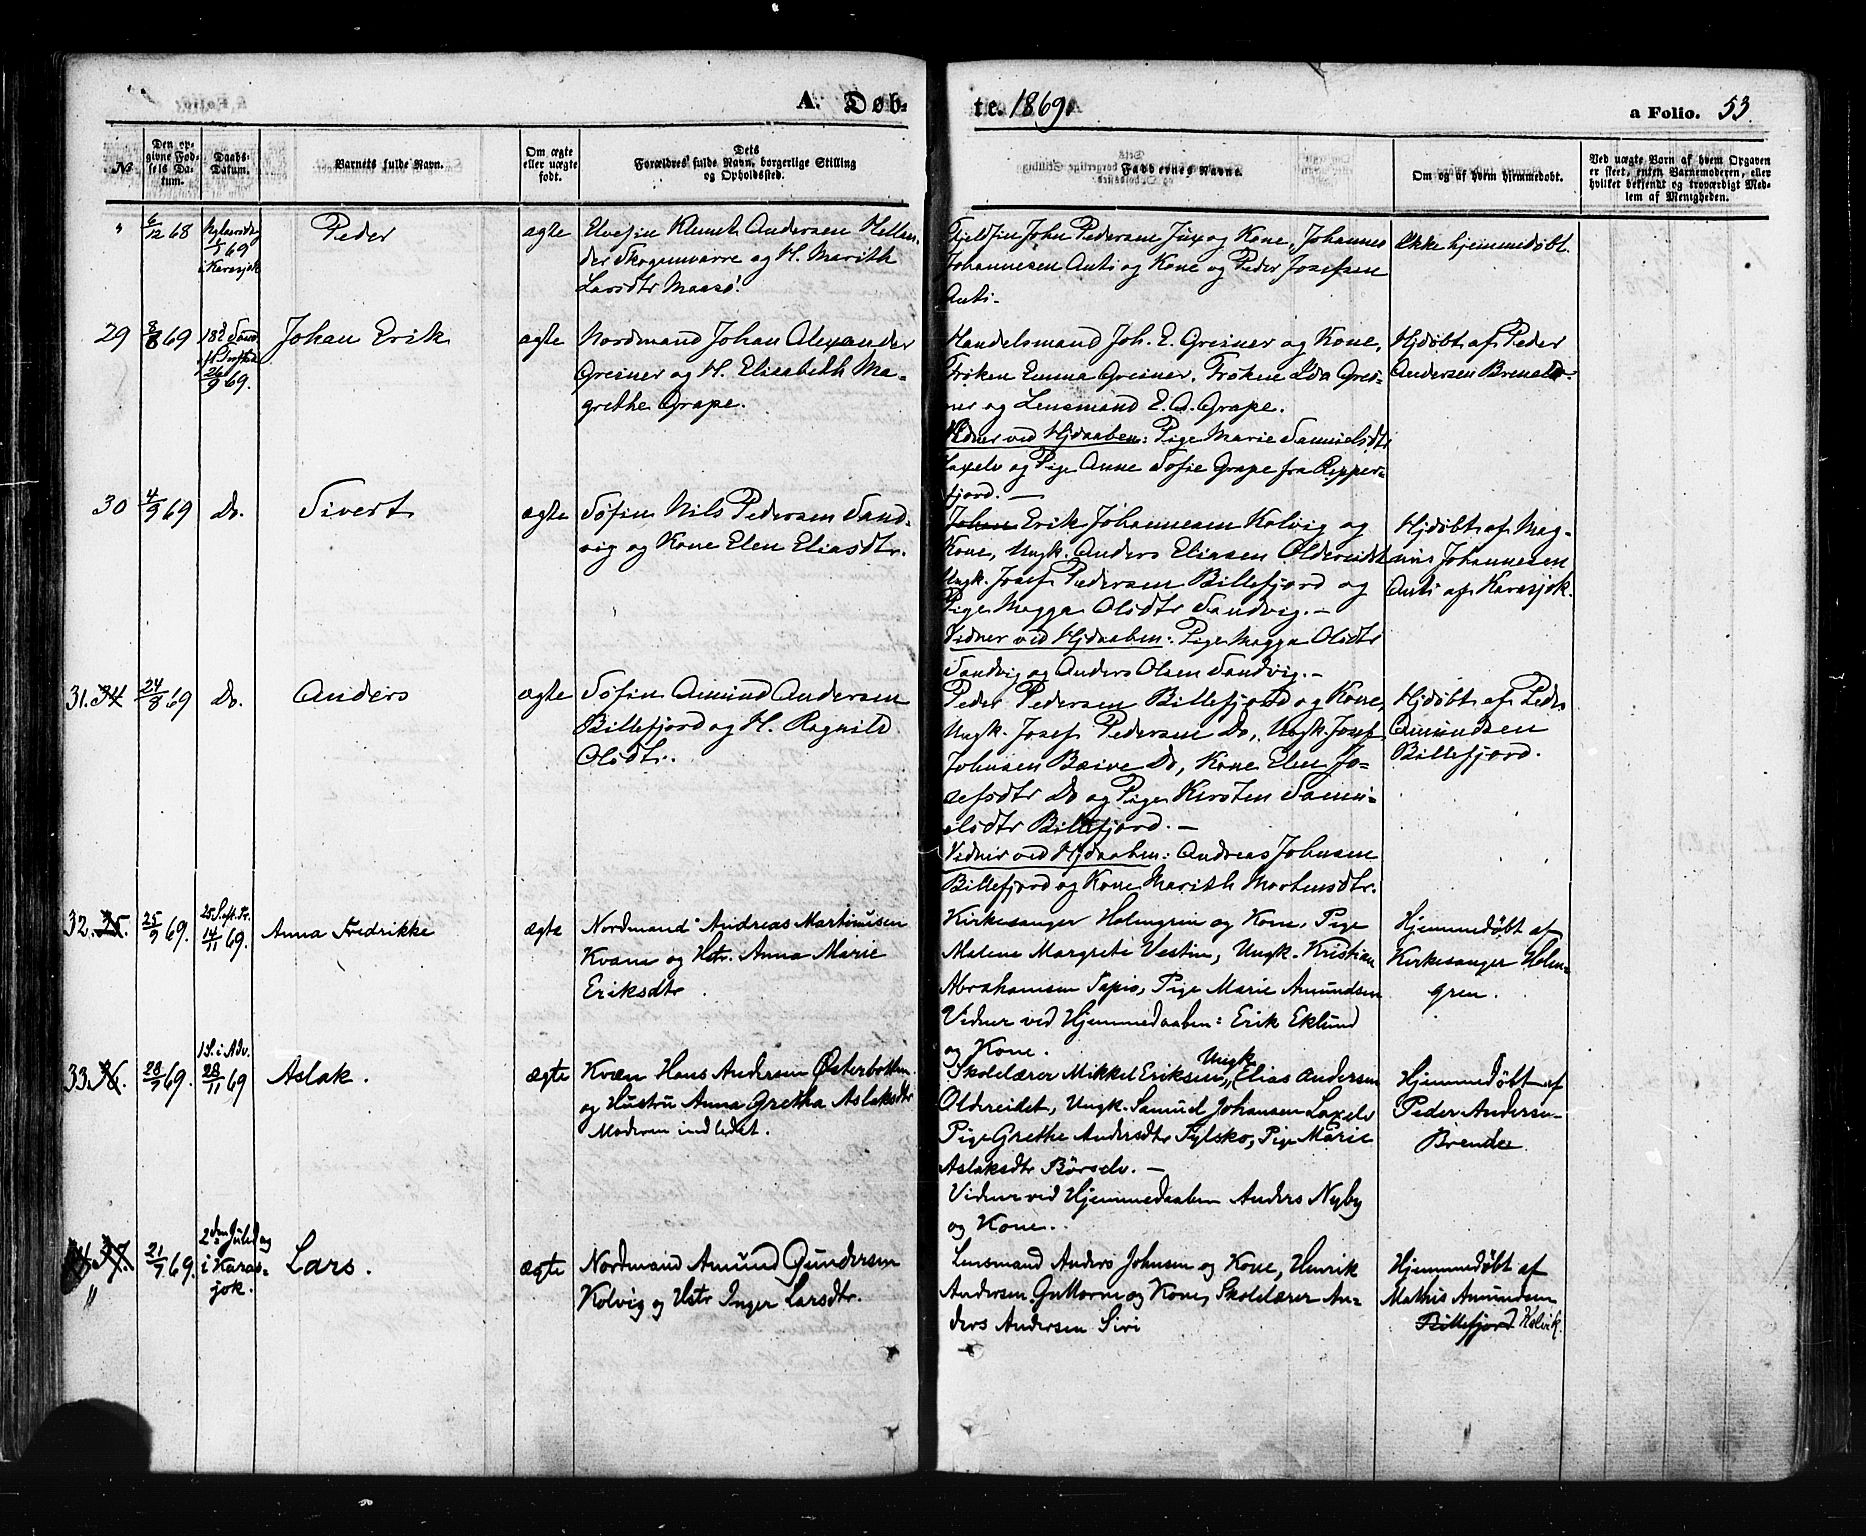 A. Døb-
te. 1869.
a Folio. 53
№
Den op-
givne Fød-
sels Da-
tum.
Daabs-
Datum.
Barnets fulde Navn.
Om ægte
eller uægte
født.
Dets
Forældres fulde Navn, borgerlige Stilling
og Opholdssted.
Faddernes Navne.
Om og af hvem hjemmedøbt.
Ved uægte Barn af hvem Opgaven
er skeet, enten Barnemoderen, eller
hvilket bekjendt og troværdigt Med-
lem af Menigheden.
"
6/12 68
1/5 69
i Karasjok
Peder
ægte
Klemet Andersen
Skoganvarre og H. Marith
Larsdtr Maasø.
Fjeldfin John Pedersen Jux og Kone, Johannes
Johannesen Anti og Kone og Peder Josefsen
Anti.
Ikke hjemmedøbt.
29
8/8 69
18d Sønd.
26/9 69.
Johan Erik
ægte
Nordmand Johan Alexander
Greiner og H. Elisabeth Ma-
grethe Grape.
Handelsmand Joh. E. Greiner og Kone,
Frøken Emma Greiner, Frøken Ida Grei-
ner og Lensmand E. A. Grape.
Vidner ved Hjdaaben: Pige Marie Samuelsdtr
Laxelv og Pige Anne Sofie Grape fra Repper-
fjord. —
Hjdøbt af Peder
Andersen
30
4/9 69
Do.
Sivert
ægte
Søfin Nils Pedersen Sand-
vig og Kone Elen Eliasdtr.
Johan Erik Johannesen Kolvig og
Kone, Ungk. Anders Eliasen Oldereidet
Ungk. Josef Pedersen Billefjord og
Pige Magga Olsdtr Sandvig. —
Vidner ved Hjdaaben: Pige Magga Olsdtr
Sandvig og Anders Olsen Sandvig. —
Hjdøbt af Mag-
nus Johannesen
Anti af Karasjok.
31. 34
24/8 69
Do.
Anders
ægte
Søfin Amund Andersen
Billefjord og H. Ragnild
Olsdtr.
Peder Pedersen Billefjord og Kone,
Ungk. Josef Pedersen Do, Ungk. Josef
Johnsen Bæive Do, Kone Elen Jo-
sefsdtr Do og Pige Kirsten Samu-
elsdtr Billefjord. —
Vidner ved Hjdaaben: Andreas Johnsen
Billefjord og Kone Marith Mortensdtr.
Hjdøbt af Peder
Amundsen
Billefjord.
32. 35.
25/9 69.
25 S. eft. Tr.
14/11 69.
Anna Fredrikke
ægte
Nordmand Andreas Martinusen
Kvam og Hstr. Anna Marie
Eriksdtr
Kirkesanger Holmgren og Kone, Pige
Malene Margrete Vestin, Ungk. Kristian
Abrahamsen Tapio, Pige Marie Amundsen
Vidner ved Hjemmedaaben: Erik Eklund
og Kone.
Hjemmedøbt af
Kirkesanger Holm-
gren.
33. 36.
28/9 69.
1 S. i Adv.
28/11 69
Aslak.
ægte
Kvæn Hans Andersen Østerbotten
og Hustru Anna Gretha Aslaksdtr
Moderen indledet.
Skolelærer Mikkel Eriksen, Ungk. Elias Andersen
Oldereidet, Ungk. Samuel Johansen Laxelv
Pige Grethe Andersdtr Pylsko, Pige Marie
Aslaksdtr Børselv. —
Vidner ved Hjemmedaaben Anders Nyby
og Kone.
Hjemmedøbt af
Peder Andersen
Brendee
37.
"
21/9 69.
2den Juledag
i Karas-
jok.
Lars.
ægte
Nordmand Amund Gundersen
Kolvig og Hstr Inger Larsdtr.
Lensmand Anders Johnsen og Kone, Henrik
Andersen Guttorm og Kone, Skolelærer An-
ders Andersen Siri
Hjemmedøbt af
Mathis Amundsen
Billefjord Kolvik.